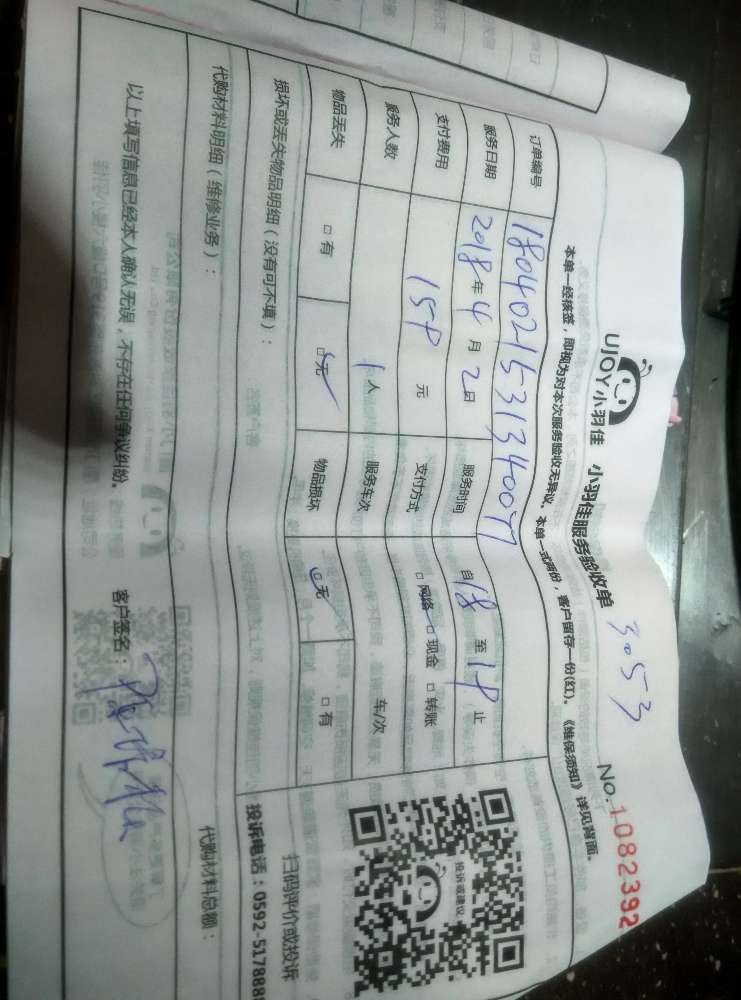 UJOY小羽佳 小羽佳服务验收单 3053 No.1082392
本单一经核签，即视为对本次服务验收无异议。本单一式两份，客户留存一份(红)。《维保须知》详见背面。
订单编号
服务日期 2018年4月2日 服务时间 自18至19止
支付费用 159元 支付方式 □网络 □现金 □转账
服务人数 1人 服务车次 车/次
物品丢失 □有 □无 物品损坏 □无 □有
损坏或丢失物品明细（没有可不填）：
代购材料明细（维修业务）： 代购材料总额：
投诉或建议
扫码评价或投诉
投诉电话：0592-517888
以上填写信息已经本人确认无误，不存在任何争议纠纷。 客户签名：